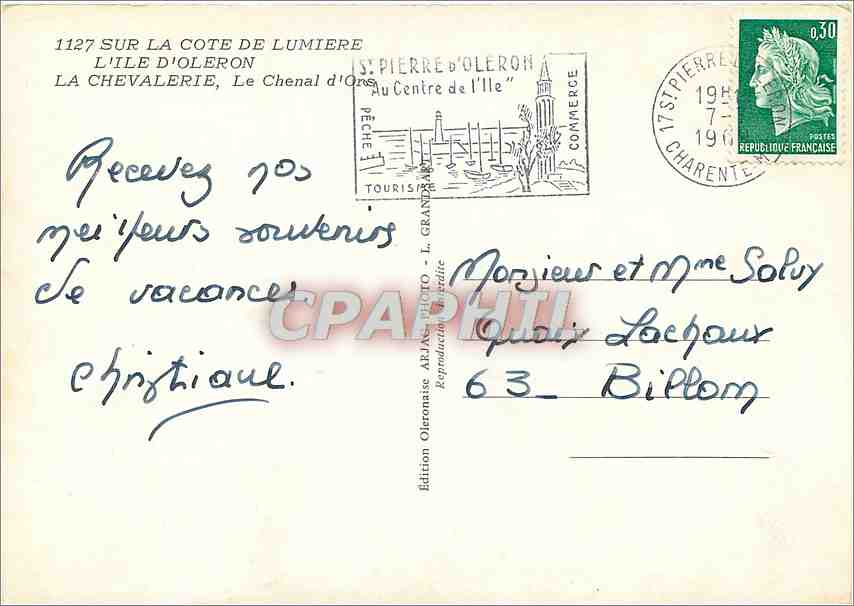 1127 SUR LA COTE DE LUMIERE
L'ILE D'OLERON
LA CHEVALERIE, Le Chenal d'Ors
St PIERRE D'OLERON
"Au Centre de l'Ile"
PÊCHE
TOURISME
COMMERCE
17 ST PIERRE D'OLERON
19H
7-
196
CHARENTE
0,30
POSTES
REPUBLIQUE FRANÇAISE
Recevez nos
meilleurs souvenirs
de vacances
Christiane.
Édition Oleronaise ARJAC PHOTO - L. GRANDSARD
Reproduction interdite
CPAPHIL
Monsieur et Mme Salvy
Quaix Lachaux
63_ Billom